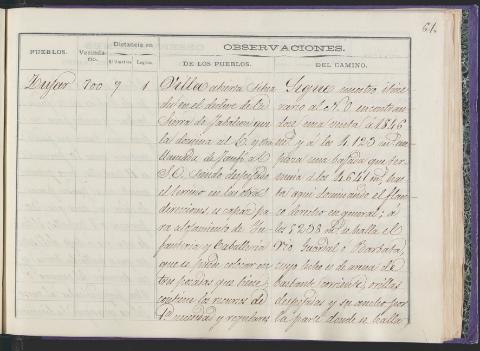 61.
OBSERVACIONES.
PUEBLOS.
Vecindario.
Distancia en
Cuartos
Leguas.
DE LOS PUEBLOS.
DEL CAMINO.
Zujar 700 7 1
Villa abierta situa
da en el declive de la
Sierra de Jabalcon que
la domina al E. y otra
llamada de al
SO. siendo despejado
el terreno en las otras
direcciones, es capaz pa
ra alojamiento de In
fanteria y Caballeria
que se puede colocar en
tres posadas que tiene,
contiene los recursos de
1ª necesidad y regulares
Sigue nuestro itine
rario al N.O. encontran
dose una venta á 1846
m.s y á los 4.123 em
pieza una bajada que ter
mina á los 4.641 m.s has
ta aqui dominando el flan
co derecho en general; á
los 5293 m.s se halla el
Rio Guardal ó Barbata,
cuyo lecho es de arena de
bastante corriente, orillas
despejadas y su ancho por
la parte donde se halla